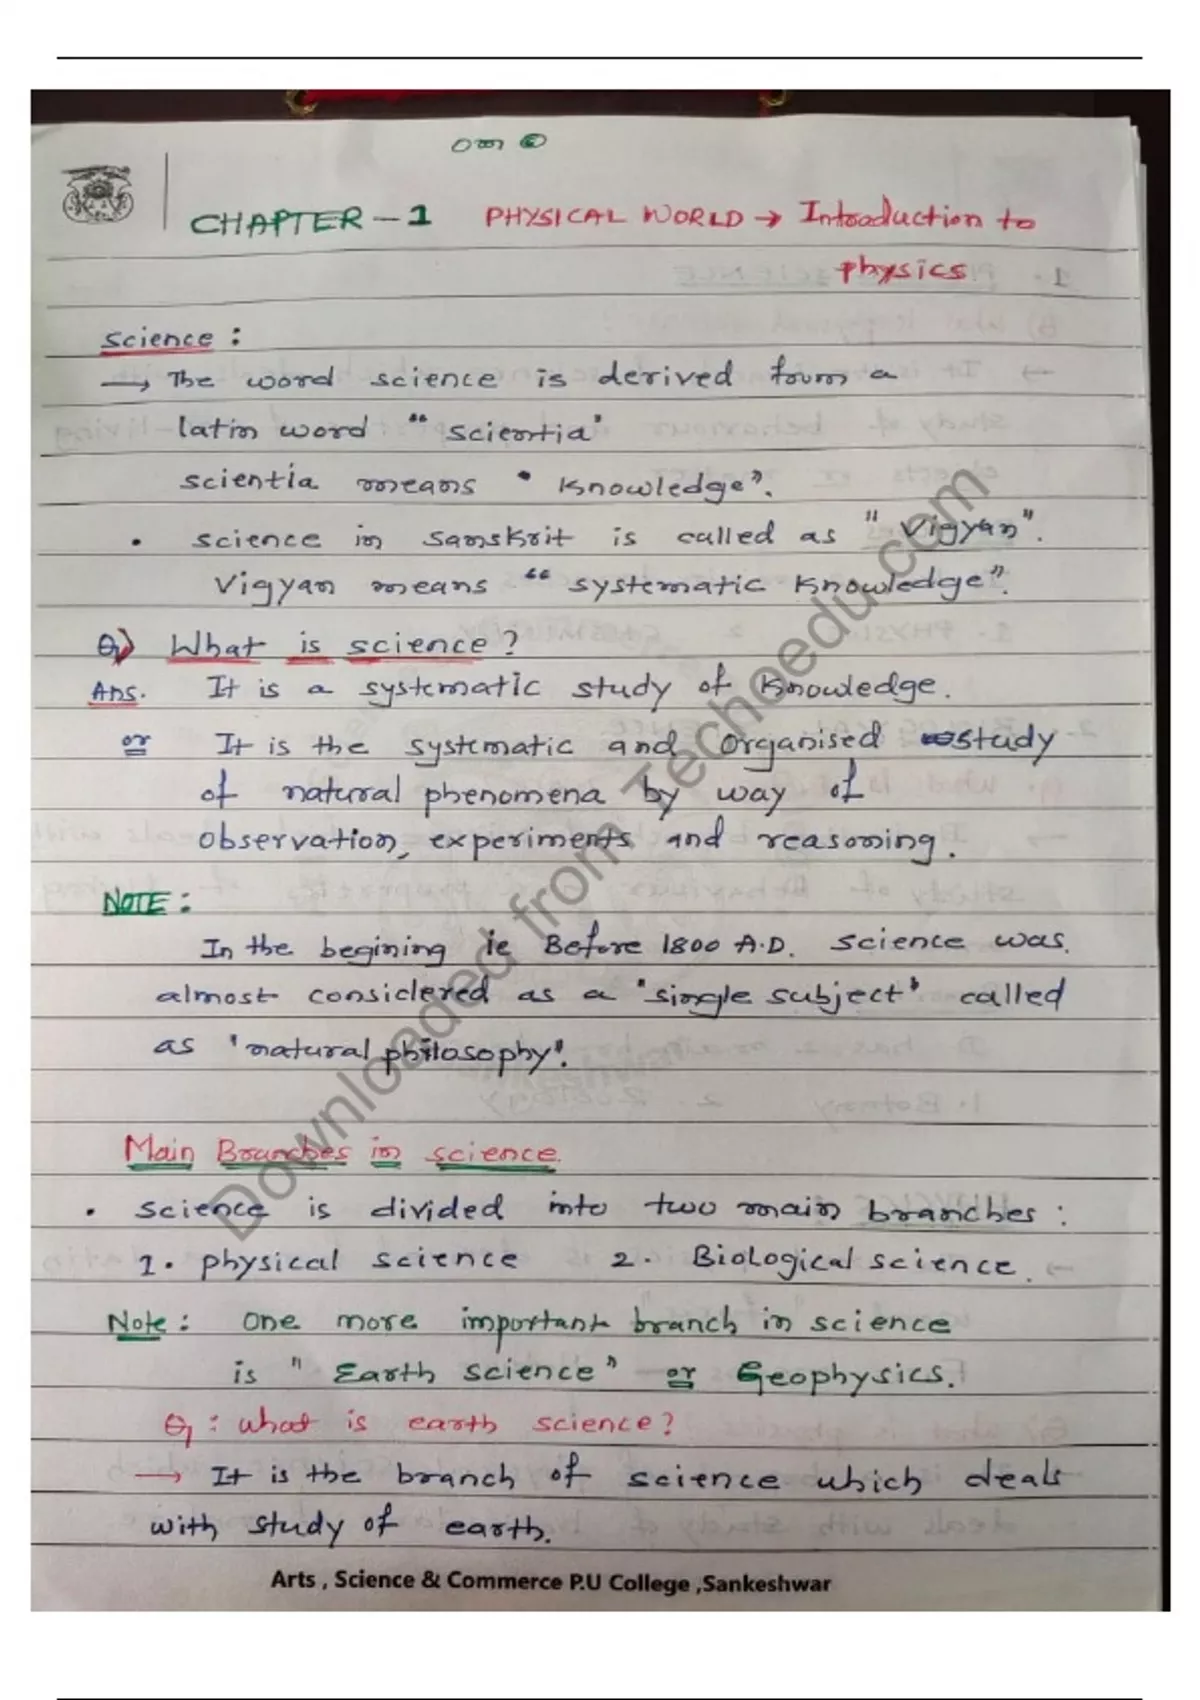 CHAPTER - 1 PHYSICAL WORLD → Introduction to
physics.
Science :
→ The word science is derived from a
latin word "scientia"
scientia means "Knowledge".
• science in sanskrit is called as "Vigyan".
Vigyan means "systematic Knowledge".
Q) What is science?
Ans. It is a systematic study of Knowledge.
or It is the systematic and organised study
of natural phenomena by way of
observation, experiments and reasoning.
NOTE :
In the begining ie Before 1800 A.D. science was
almost considered as a "single subject" called
as 'natural philosophy'.
Main Branches in science.
• science is divided into two main branches :
1. physical science 2. Biological science.
Note : One more important branch in science
is "Earth science" or Geophysics.
Q : what is earth science?
→ It is the branch of science which deals
with study of earth.
Arts , Science & Commerce P.U College ,Sankeshwar
Downloaded from Techoedu.com